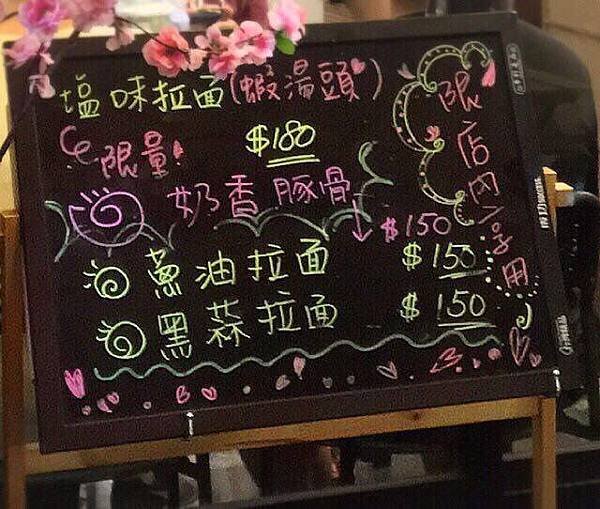 塩味拉面(蝦湯頭)
限量 $180
奶香豚骨
$150
蔥油拉面 $150
黑蒜拉面 $150
限店內享用